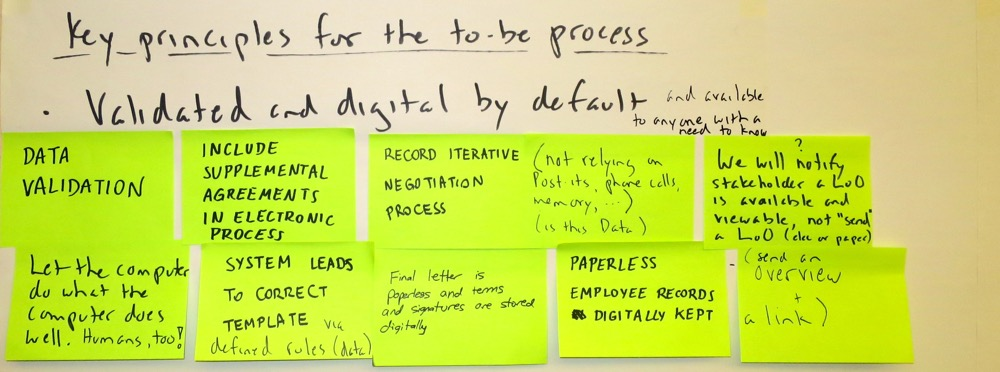 Key principles for the to-be process
• Validated and digital by default and available
to anyone with a
need to know
DATA
VALIDATION
INCLUDE
SUPPLEMENTAL
AGREEMENTS
IN ELECTRONIC
PROCESS
RECORD ITERATIVE
NEGOTIATION
PROCESS
(not relying on
Post-its, phone calls,
memory, ...)
(is this Data)
?
We will notify
stakeholder a LoO
is available and
viewable, not "send"
a LoO (elec or paper)
Let the computer
do what the
computer does
well. Humans, too!
SYSTEM LEADS
TO CORRECT
TEMPLATE via
defined rules (data)
Final letter is
paperless and terms
and signatures are stored
digitally
PAPERLESS
EMPLOYEE RECORDS
DIGITALLY KEPT
- (send an
overview
+
a link)